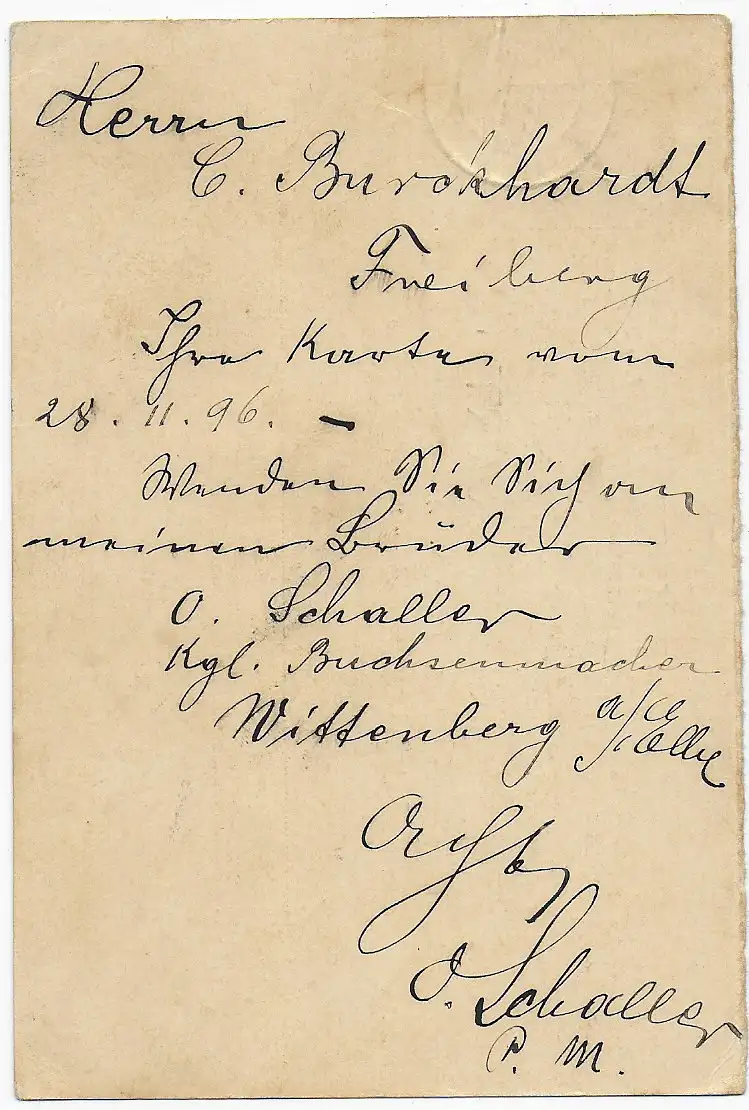 Herrn
C. Burckhardt
Freiberg
Ihre Karte vom
28. 11. 96. –
Wenden Sie Sich an
meinen Brüder
O. Schaller
Kgl. Buchsenmacher
Wittenberg a/Elbe
Achtb
O. Schaller
P. M.